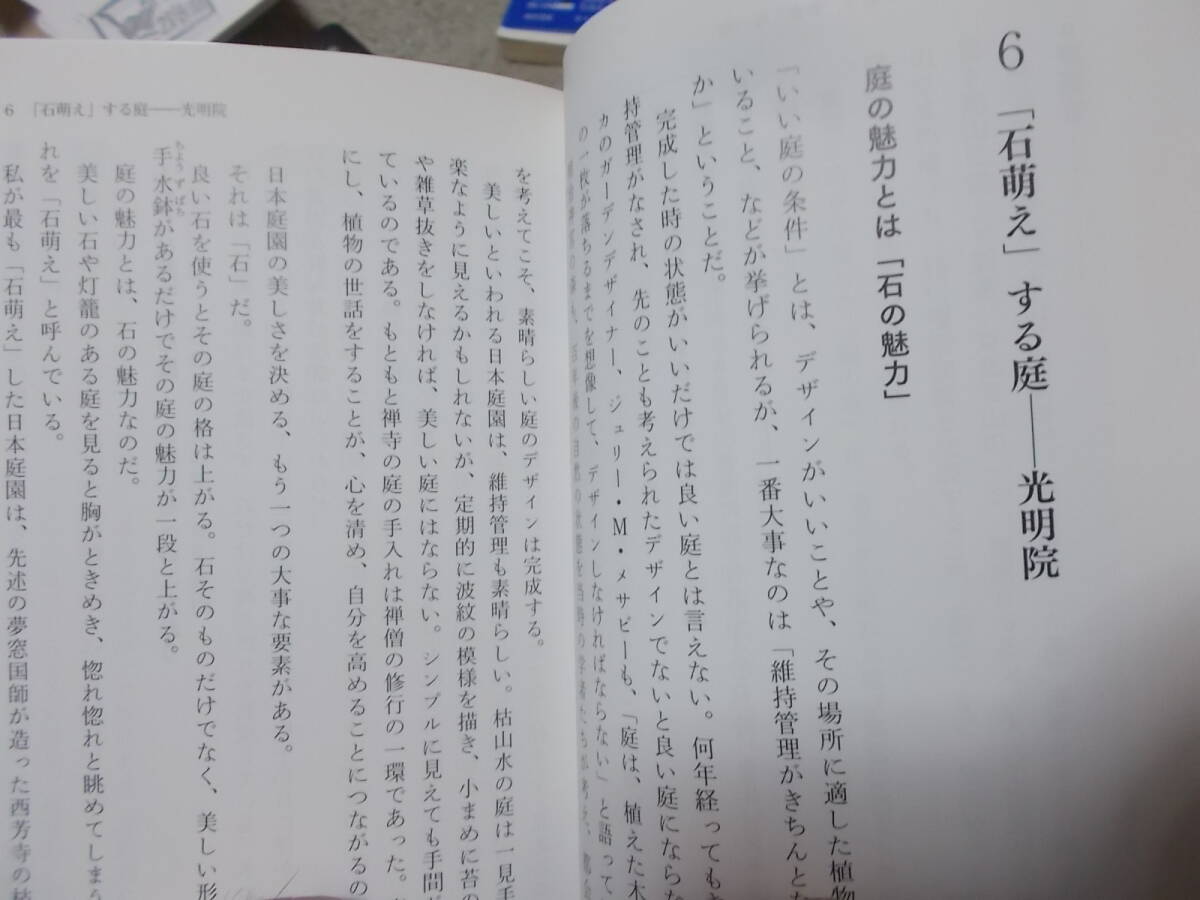 6 「石萌え」する庭──光明院
庭の魅力とは「石の魅力」
「いい庭の条件」とは、デザインがいいことや、その場所に適した植物
いること、などが挙げられるが、一番大事なのは「維持管理がきちんとな
か」ということだ。
完成した時の状態がいいだけでは良い庭とは言えない。何年経ってもき
持管理がなされ、先のことも考えられたデザインでないと良い庭にならな
カのガーデンデザイナー、ジュリー・M・メサビーも、「庭は、植えた木
の一枚が落ちるまでを想像して、デザインしなければならない」と語って
6 「石萌え」する庭──光明院
を考えてこそ、素晴らしい庭のデザインは完成する。
美しいといわれる日本庭園は、維持管理も素晴らしい。枯山水の庭は一見手
楽なように見えるかもしれないが、定期的に波紋の模様を描き、小まめに苔の
や雑草抜きをしなければ、美しい庭にはならない。シンプルに見えても手間が
ているのである。もともと禅寺の庭の手入れは禅僧の修行の一環であった。
にし、植物の世話をすることが、心を清め、自分を高めることにつながるの
日本庭園の美しさを決める、もう一つの大事な要素がある。
それは「石」だ。
良い石を使うとその庭の格は上がる。石そのものだけでなく、美しい形
手水鉢があるだけでその庭の魅力が一段と上がる。
ちょうずばち
庭の魅力とは、石の魅力なのだ。
美しい石や灯籠のある庭を見ると胸がときめき、惚れ惚れと眺めてしまう
れを「石萌え」と呼んでいる。
私が最も「石萌え」した日本庭園は、先述の夢窓国師が造った西芳寺の枯